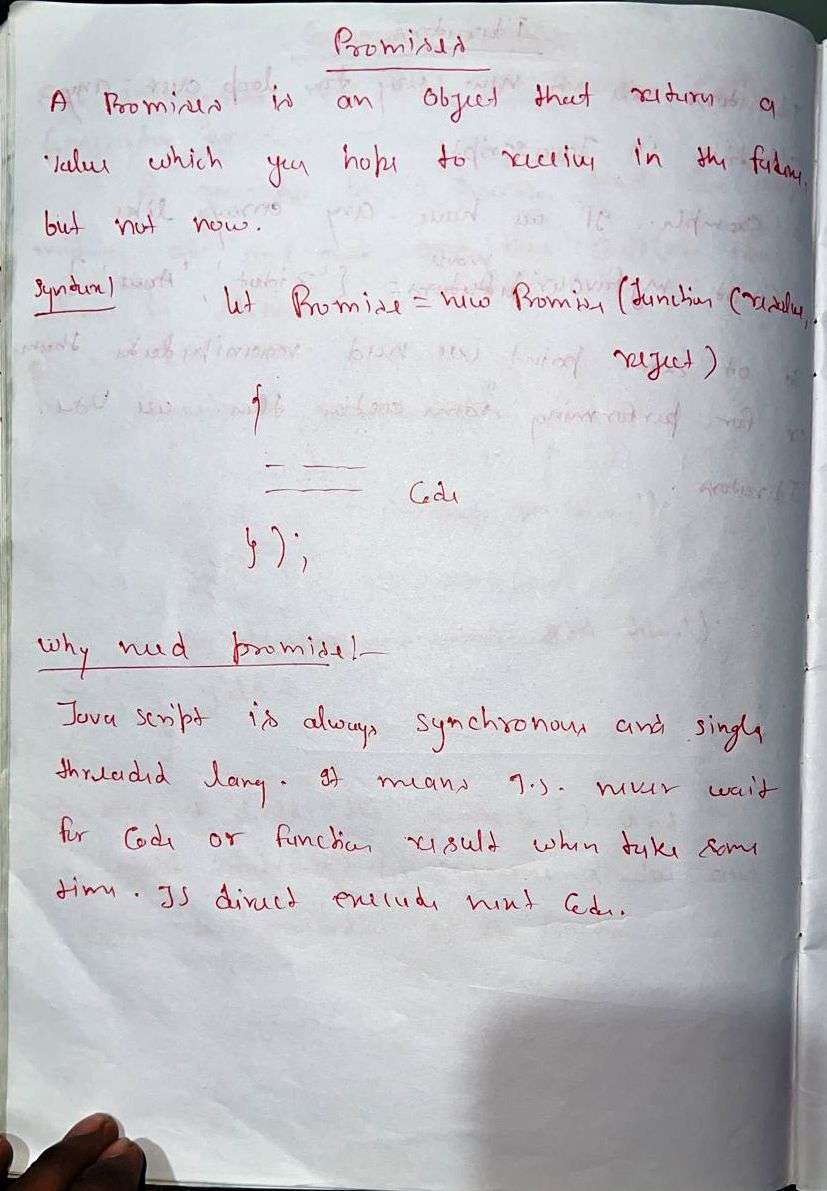 Promises
A Promises is an object that return a
value which you hope to receive in the future.
but not now.
Syntax!
let Promise = new Promise (function (resolve,
reject)
{
Code
});
Why need promise!-
Java script is always synchronous and single
threaded lang. It means J.S. never wait
for Code or function result when take some
time. JS direct execute next Code.